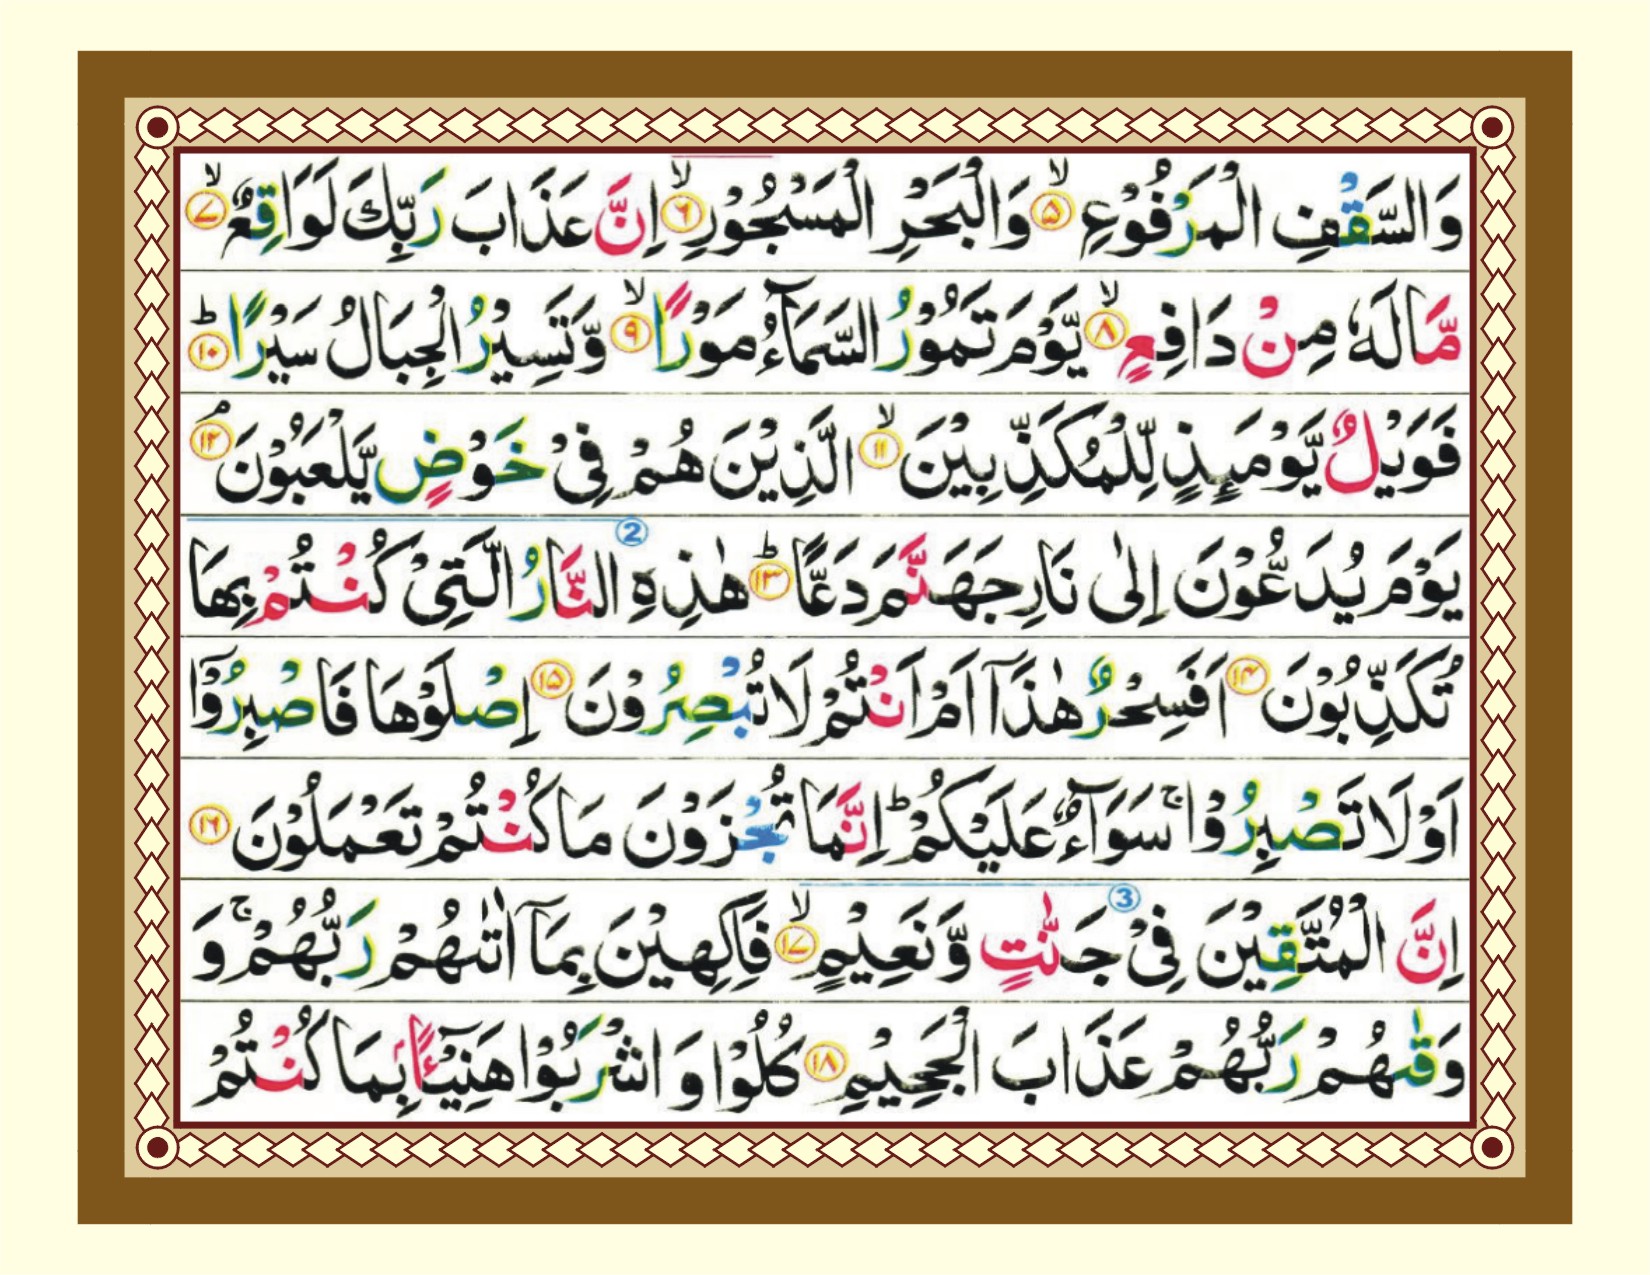 وَالسَّقْفِ الْمَرْفُوْعِ ۙ‏﴿۵﴾ وَالْبَحْرِ الْمَسْجُوْرِ ۙ‏﴿۶﴾ اِنَّ عَذَابَ رَبِّكَ لَوَاقِعٌ ۙ‏﴿۷﴾
مَّا لَهٗ مِنْ دَافِعٍ ۙ‏﴿۸﴾ يَّوْمَ تَمُوْرُ السَّمَآءُ مَوْرًا ۙ‏﴿۹﴾ وَّتَسِيْرُ الْجِبَالُ سَيْرًا ؕ‏﴿۱۰﴾
فَوَيْلٌ يَّوْمَئِذٍ لِّلْمُكَذِّبِيْنَ ۙ‏﴿۱۱﴾ الَّذِيْنَ هُمْ فِىْ خَوْضٍ يَّلْعَبُوْنَ ۘ‏﴿۱۲﴾
يَوْمَ يُدَعُّوْنَ اِلٰى نَارِ جَهَنَّمَ دَعًّا ؕ‏﴿۱۳﴾ هٰذِهِ النَّارُ الَّتِىْ كُنْتُمْ بِهَا ②
تُكَذِّبُوْنَ ﴿۱۴﴾ اَفَسِحْرٌ هٰذَاۤ اَمْ اَنْتُمْ لَا تُبْصِرُوْنَ ﴿۱۵﴾ اِصْلَوْهَا فَاصْبِرُوْۤا
اَوْ لَا تَصْبِرُوْا ۚ سَوَآءٌ عَلَيْكُمْ ؕ اِنَّمَا تُجْزَوْنَ مَا كُنْتُمْ تَعْمَلُوْنَ ﴿۱۶﴾
اِنَّ الْمُتَّقِيْنَ فِىْ جَنّٰتٍ وَّنَعِيْمٍ ۙ‏﴿۱۷﴾ فَاكِهِيْنَ بِمَاۤ اٰتٰىهُمْ رَبُّهُمْ ۚ وَ ③
وَقٰىهُمْ رَبُّهُمْ عَذَابَ الْجَحِيْمِ ﴿۱۸﴾ كُلُوْا وَاشْرَبُوْا هَنِيْٓئًۢا بِمَا كُنْتُمْ